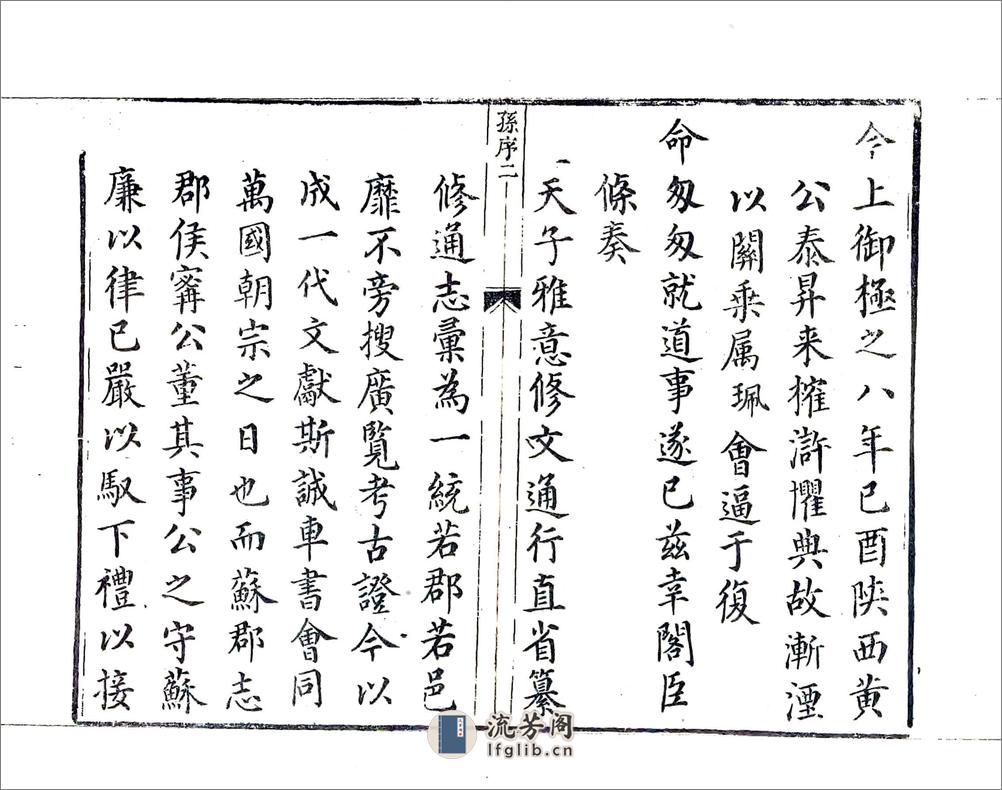 今上御極之八年己酉陝西黄
公泰昇来㩁滸懼典故漸湮
以關乘属珮會逼于復
命匆匆就道事遂已茲幸閣臣
條奏
天子雅意修文通行直省纂
孫序二
修通志彙為一統若郡若邑
靡不旁搜廣覧考古證今以
成一代文獻斯誠車書會同
萬國朝宗之日也而蘇郡志
郡侯寗公董其事公之守蘇
廉以律已嚴以馭下禮以接
流芳阁
lfglib.cn